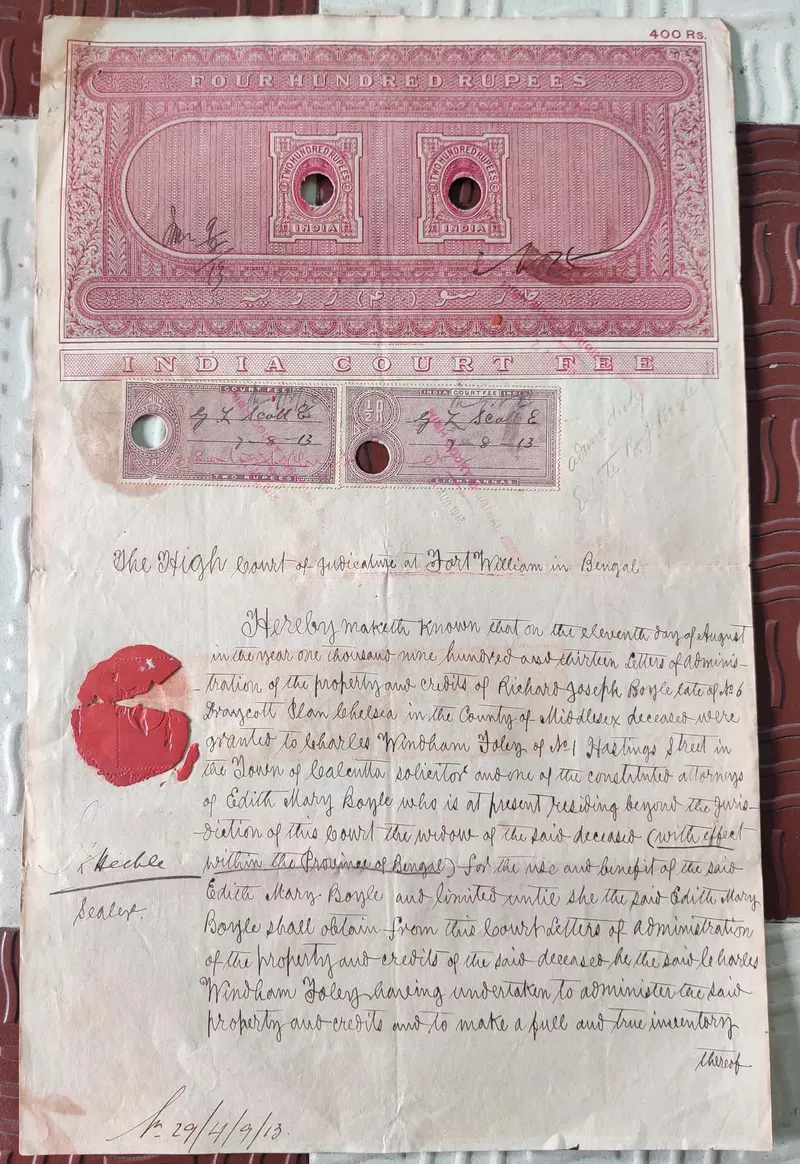 400 Rs.
FOUR HUNDRED RUPEES
TWO HUNDRED RUPEES
INDIA
TWO HUNDRED RUPEES
INDIA
13
چار سو (۴۰۰) روپیہ
INDIA COURT FEE
COURT FEE
INDIA COURT FEE INDIA
G L Scott E
7 - 8 - 13
TWO RUPEES
G L Scott E
7 8 13
EIGHT ANNAS
The High Court of Judicature at Fort William in Bengal
Hereby maketh known that on the eleventh day of August
in the year one thousand nine hundred and thirteen Letters of Adminis-
-tration of the property and credits of Richard Joseph Boyle late of No 6
Draycott Place Chelsea in the County of Middlesex deceased were
granted to Charles Windham Foley of No 1 Hastings Street in
the Town of Calcutta solicitor and one of the constituted attorneys
of Edith Mary Boyle who is at present residing beyond the Juris-
-diction of this Court the widow of the said deceased (with effect
within the Province of Bengal) for the use and benefit of the said
Edith Mary Boyle and limited until she the said Edith Mary
Boyle shall obtain from this Court Letters of administration
of the property and credits of the said deceased he the said Charles
Windham Foley having undertaken to administer the said
property and credits and to make a full and true inventory
thereof
Sealer.
29/4/9/13.